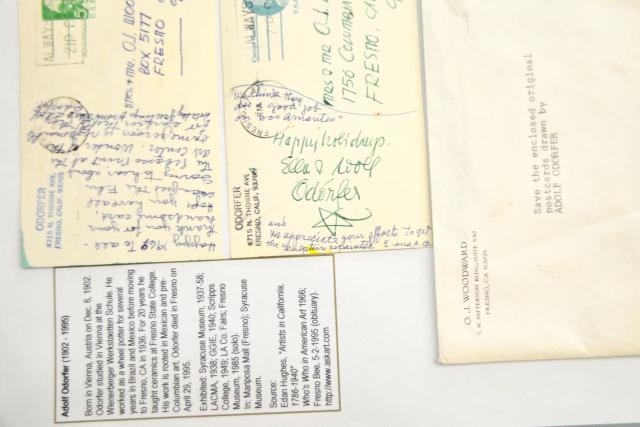 ALWAYS
ZIP
MRS & MR. O.J. WOO
BOX 5177
FRESNO
ODORFER
4715 N. THORNE AVE.
FRESNO, CALIF. 93705
Happy 1969 To all
thank you for your
handsome card,
hope you have all
escaped the Flu.
ALWAYS
ZIP
MRS & MR O.J.
1756 Columbia
FRESNO,
we think they
did a good job
FRESNO
Happy Holidays.
Ella & Adolf
Odorfer
ODORFER
4715 N. THORNE AVE.
FRESNO, CALIF. 93705
and
We appreciate your efforts to get
the sculpture repainted. E. and A. O.
Save the enclosed original
postcards drawn by
ADOLF ODORFER
O. J. WOODWARD
T. W. PATTERSON BLDG., SUITE 540
FRESNO, CA 93721
Adolf Odorfer (1902 - 1995)
Born in Vienna, Austria on Dec. 6, 1902.
Odorfer studied in Vienna at the
Wienerberger Werkstaetten Schule. He
worked as a wheel potter for several
years in Brazil and Mexico before moving
to Fresno, CA in 1936. For 20 years he
taught ceramics at Fresno State College.
His work is rooted in Mexican and pre-
Columbian art. Odorfer died in Fresno on
April 29, 1995.
Exhibited: Syracuse Museum, 1937-58;
LACMA, 1938; GGIE, 1940; Scripps
College, 1949; LA Co. Fairs; Fresno
Museum, 1985 (solo).
In: Mariposa Mall (Fresno); Syracuse
Museum.
Source:
Edan Hughes, "Artists in California,
1786-1940"
Who's Who in American Art 1966;
Fresno Bee, 5-2-1995 (obituary).
http://www.askart.com